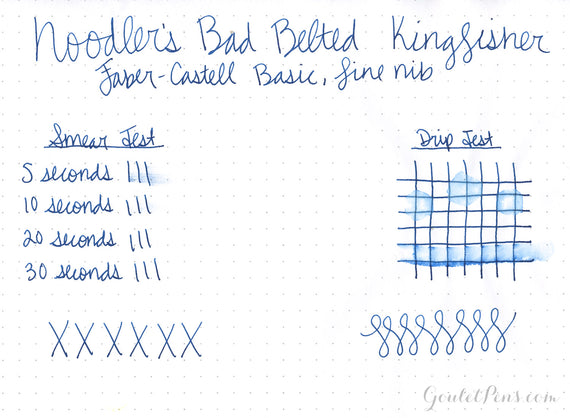 Noodler's Bad Belted Kingfisher
Faber-Castell Basic, fine nib
Smear Test
5 seconds
10 seconds
20 seconds
30 seconds
Drip Test
XXXXXX
GouletPens.com